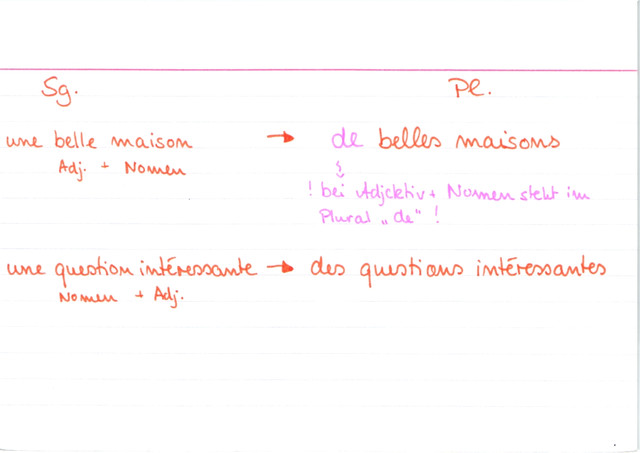 Sg. Pl.
une belle maison → de belles maisons
Adj. + Nomen
! bei Adjektiv + Nomen steht im
Plural „de" !
une question intéressante → des questions intéressantes
Nomen + Adj.